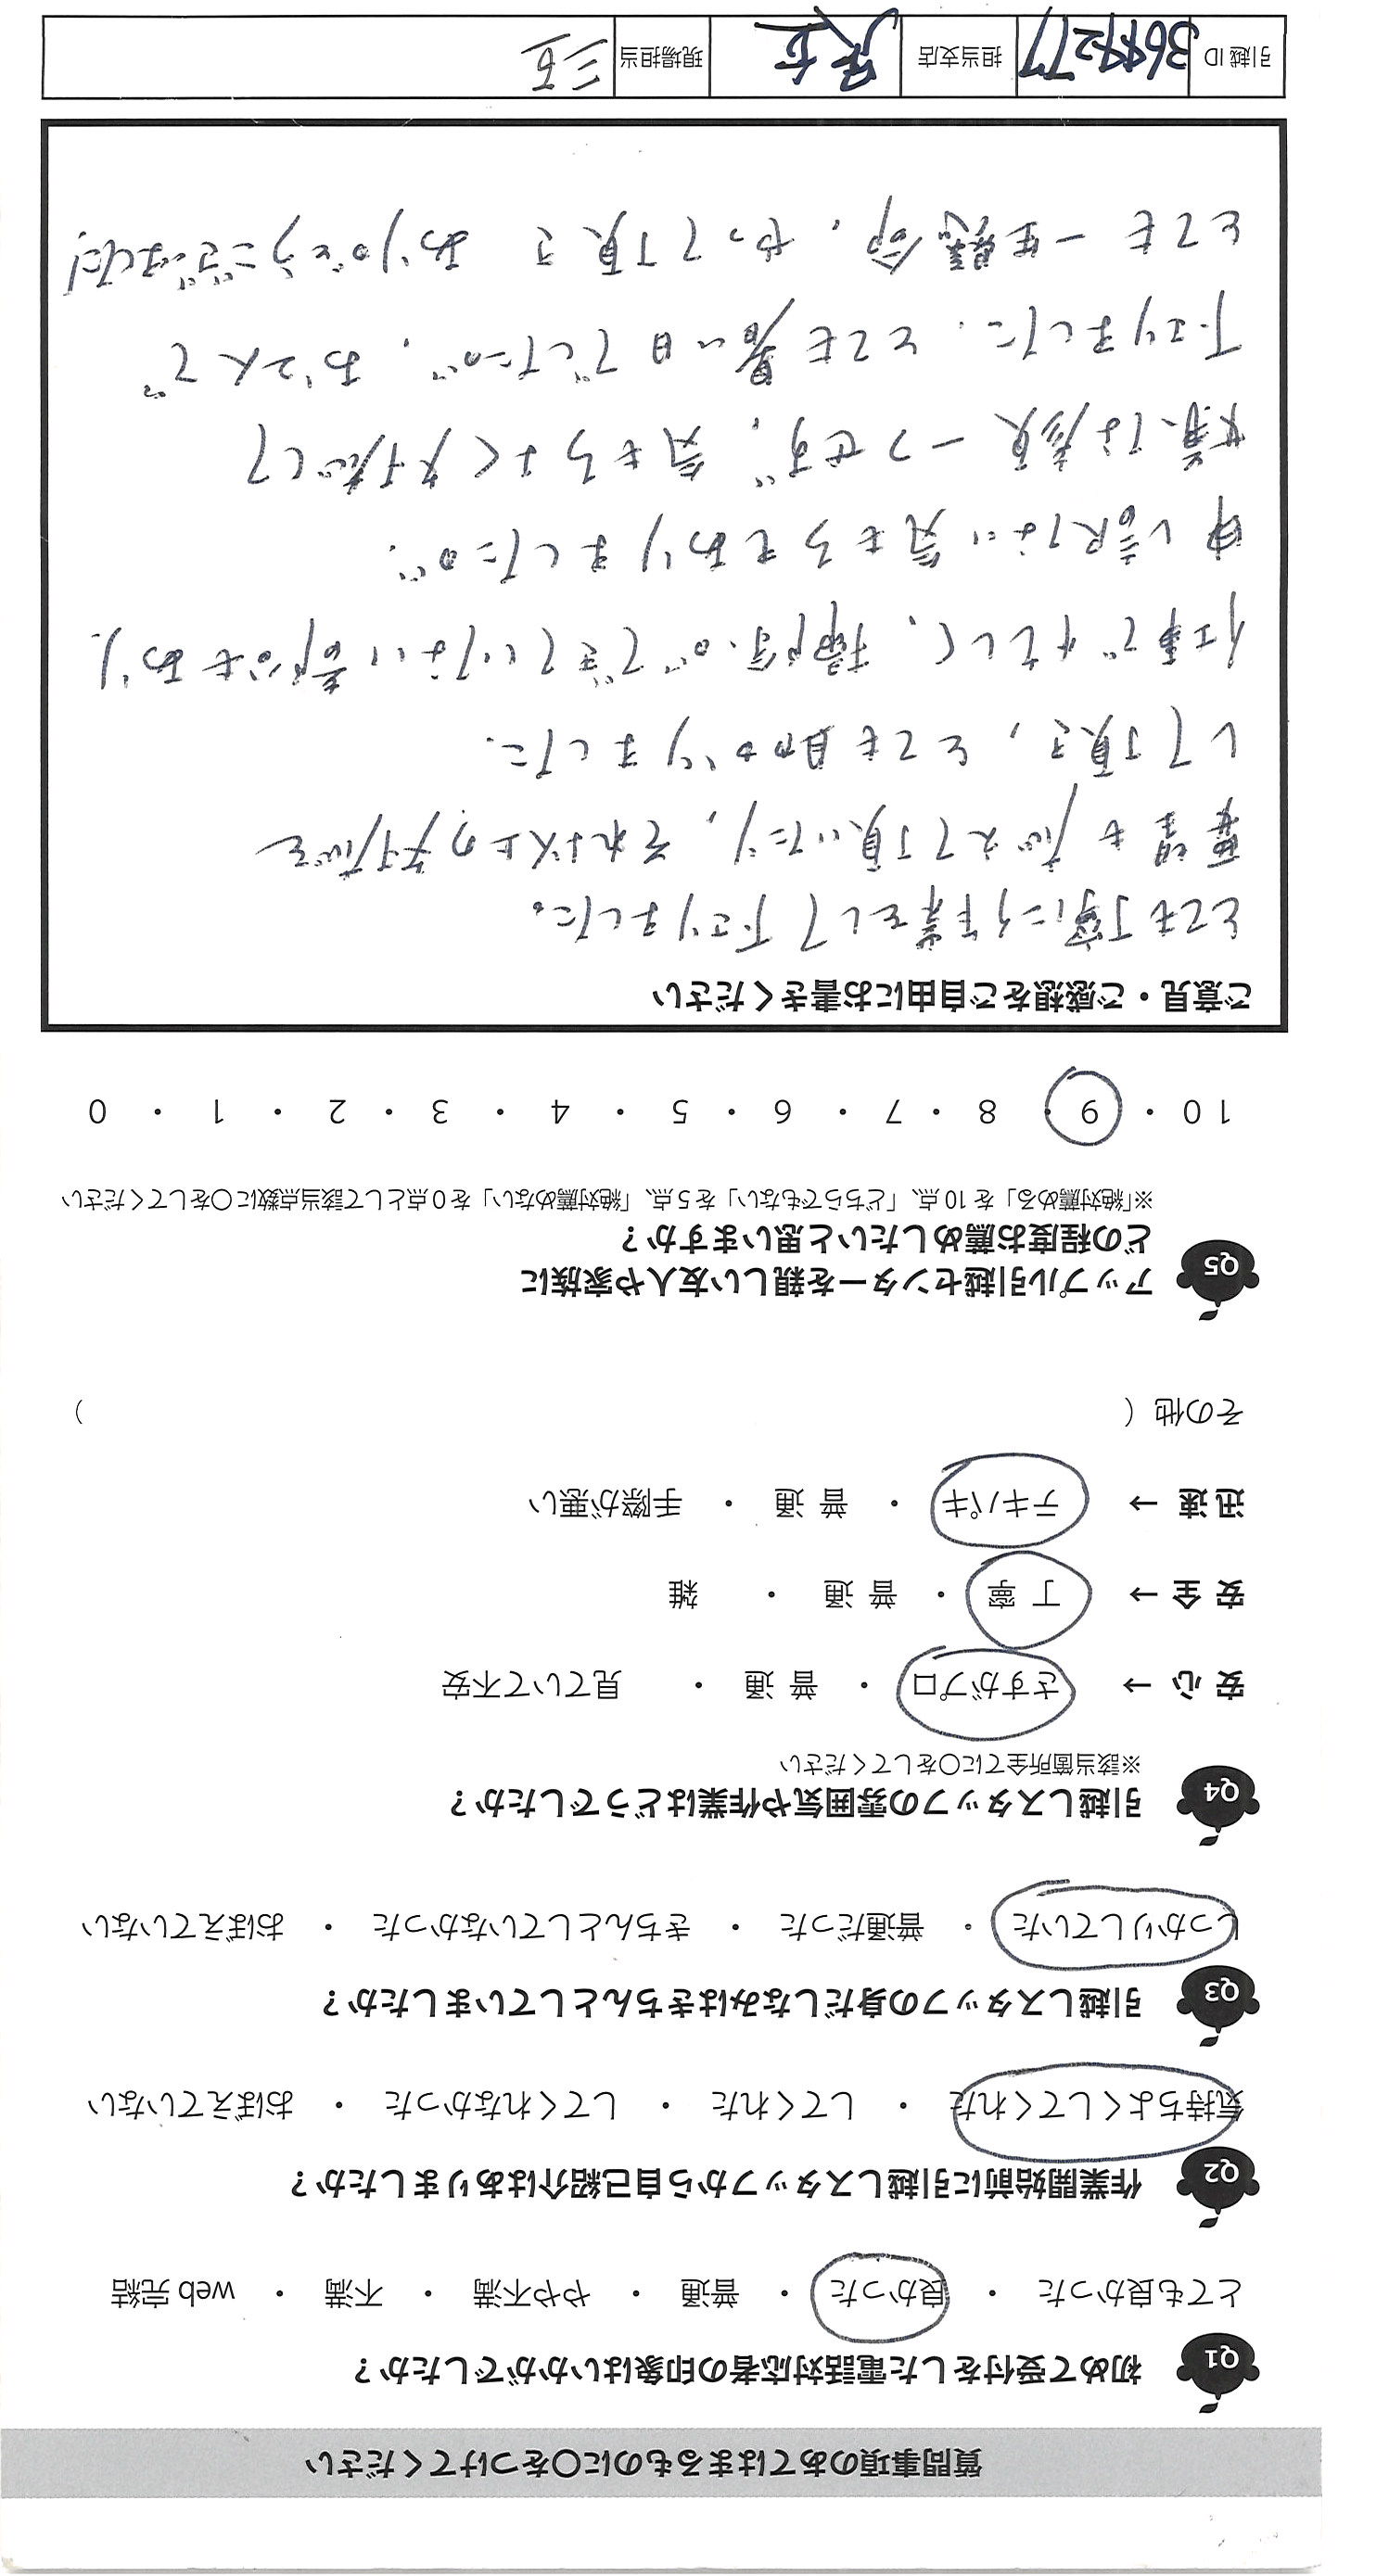 質問事項のあてはまるものに〇をつけてください
Q1 初めて受付をした電話対応者の印象はいかがでしたか？
とても良かった ・ 良かった ・ 普通 ・ やや不満 ・ 不満 ・ web 完結
Q2 作業開始前に引越しスタッフから自己紹介はありましたか？
気持ちよくしてくれた ・ してくれた ・ してくれなかった ・ おぼえていない
Q3 引越しスタッフの身だしなみはきちんとしていましたか？
しっかりしていた ・ 普通だった ・ きちんとしていなかった ・ おぼえていない
Q4 引越しスタッフの雰囲気や作業はどうでしたか？
※該当箇所全てに〇をしてください
安 心 → さすがプロ ・ 普 通 ・ 見ていて不安
安 全 → 丁 寧 ・ 普 通 ・ 雑
迅 速 → テキパキ ・ 普 通 ・ 手際が悪い
その他（ ）
Q5 アップル引越センターを親しい友人や家族に
どの程度お薦めしたいと思いますか？
※「絶対薦める」を 10 点、「どちらでもない」を 5 点、「絶対薦めない」を 0 点として該当点数に〇をしてください
10 ・ 9 ・ 8 ・ 7 ・ 6 ・ 5 ・ 4 ・ 3 ・ 2 ・ 1 ・ 0
ご意見・ご感想をご自由にお書きください
とても丁寧に作業をして下さりました。
要望も応えて頂いたり、それ以上の対応を
して頂き、とても助かりました.
仕事で忙しく、掃除ができていない部分もあり、
申し訳ない気もちもありましたが.
嫌な顔一つせず、気もちよく対応して
下さりました. とても暑い日でしたが、お2人で
とても一生懸命、やって頂き ありがとうございました!
引越 ID 3649277 担当支店 現場担当 三石